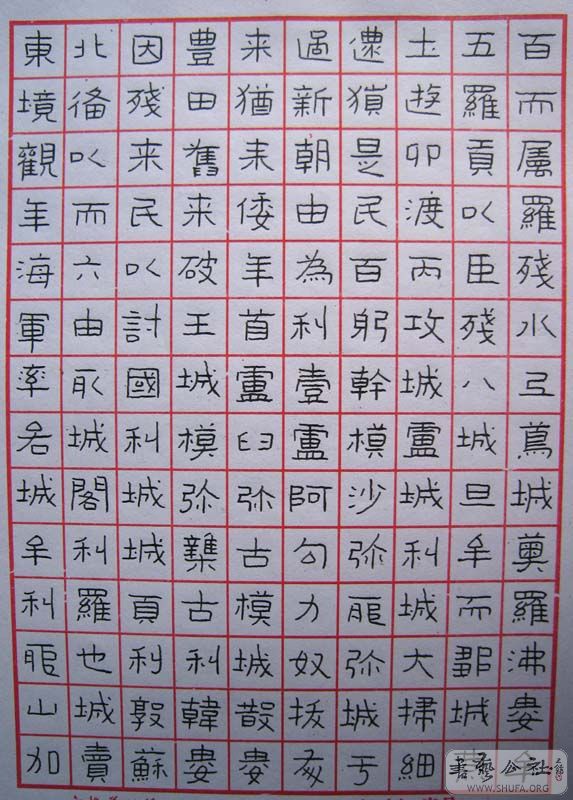 百而属羅殘水弖蔦城奠羅沸婁
五羅貢以臣殘八城旦牟而鄒城
土遊卯渡丙攻城盧城利城大掃細
是民百躬幹模沙弥龍弥城于
過新朝由為利壹盧阿勾力奴拔
来猶未倭年首盧臼弥古模城散婁
豊田舊来破王城模弥龔古利韓婁
因殘来民以討國利城城頁利敦蘇
北備以而六由取城閣利羅也城賣
東境觀年海軍率各城牟利龍山加
書藝公社
WWW.SHUFA.ORG